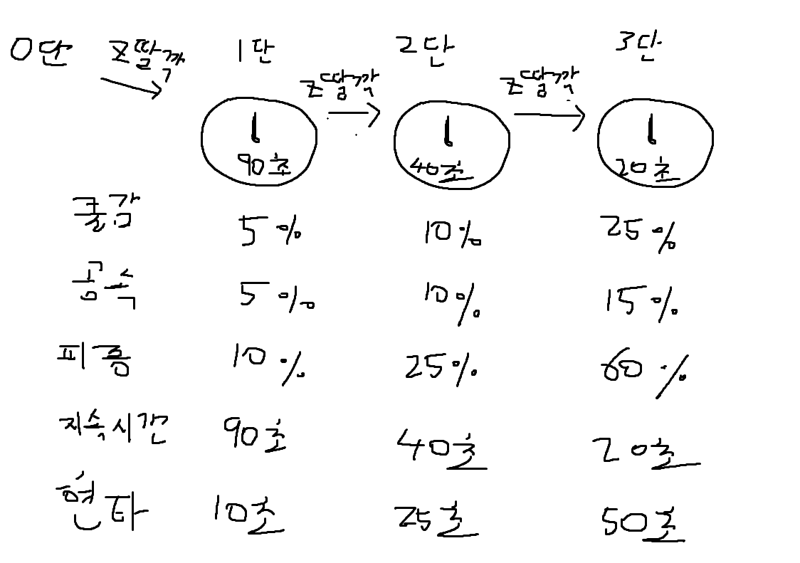 0단 Z딸깍 1단 Z딸깍 2단 Z딸깍 3단
90초 40초 20초
쿨감 5% 10% 25%
공속 5% 10% 15%
피증 10% 25% 60%
지속시간 90초 40초 20초
현타 10초 25초 50초